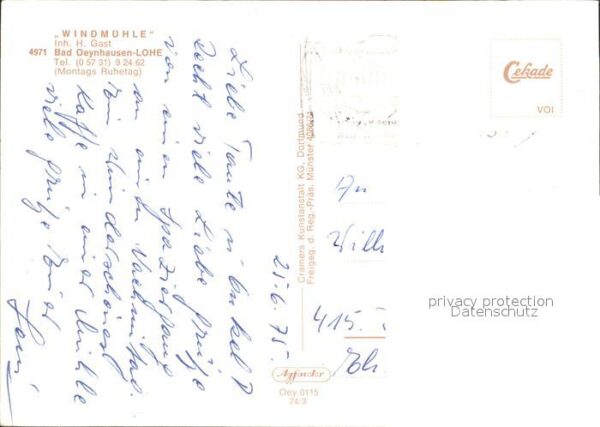 „WINDMÜHLE"
Inh. H. Gast
4971 Bad Oeynhausen-LOHE
Tel. (0 57 31) 9 24 62
(Montags Ruhetag)
25.6.75.
Liebe Tante u. Onkel
Recht viele Liebe Grüße
von einen Spaziergang
an einen Nachmittag.
Ein wunderschönes
Kaffe in einer Mühle
viele Grüße Euer
Cramers Kunstanstalt KG, Dortmund
Freigeg. d. Reg.-Präs. Münster
Cekade
VOI
An
Will
415
privacy protection
Datenschutz
Oey 0115
74/3